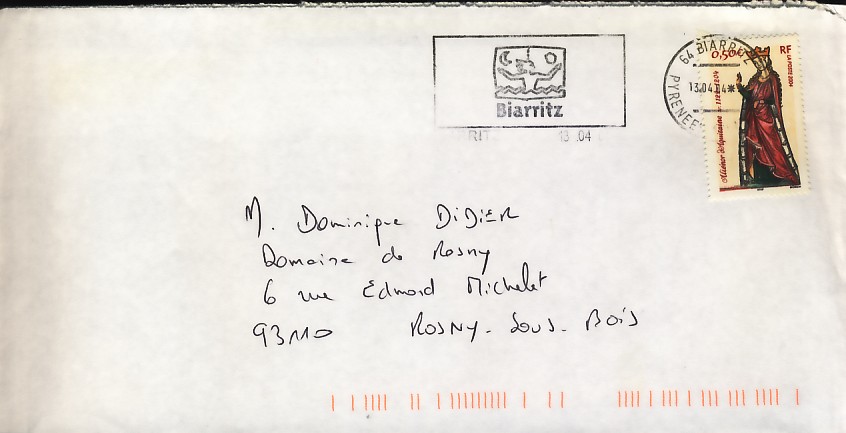 64 BIARRITZ
PYRENEES
13.04.04*
Biarritz
RIT 13 .04
0,50€
RF
LA POSTE 2004
Aliénor d'Aquitaine - 1122-1204
M. Dominique DIDIER
Domaine de Rosny
6 rue Edmond Michelet
93110 ROSNY-SOUS-BOIS